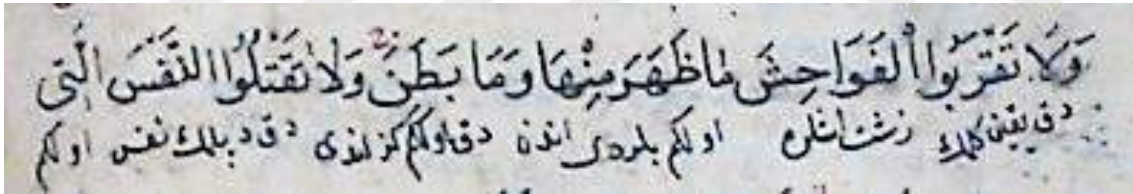 وَلَا تَقْرَبُوا الْفَوَاحِشَ مَا ظَهَرَ مِنْهَا وَمَا بَطَنَ وَلَا تَقْتُلُوا النَّفْسَ الَّتِي
دقی یقین کلمك زشت اشلره اولکم بلوردی اندن دقی اولکم کزلندی دقی دپلمك نفس اولکم